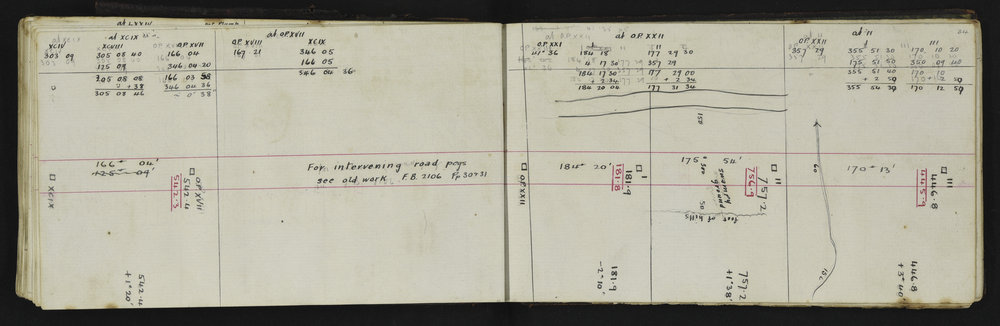 at LXXIV
at XCIX
XCIV XCVIII OP XVII
303 09 305 08 40 166 04
125 09 346 04 20
305 08 08 166 03 58
+ 38 346 04 36
305 08 46 - 0 38
at OP XVII
OP XVIII XCIX
167 21 346 05
166 05
346 04 36
at OP XXII
OP XXI I II
141° 36 184 18 177 29 30
4 17 30 357 29
184 17 30 177 29 00
+ 2 34 + 2 34
184 20 04 177 31 34
at II
OP XXII I III
357 29 355 51 30 170 10 20
175 51 50 350 09 40
355 51 40 170 10
+ 2 50
355 54 30 170 12 50
84
166° 04'
125° 09'
XCIX
OP XVII
542.4
542.3
542.4
+1° 20'
For intervening road pegs
see old work F.B. 2106 Fp 30931
OP XXII
184° 20'
I
181.9
181.8
181.9
-2° 10'
150
175° 54'
swampy
ground
50
foot of hills
II
757.2
756.9
757.2
+1° 38'
60
170° 13'
III
446.8
445.9
446.8
+3° 40'